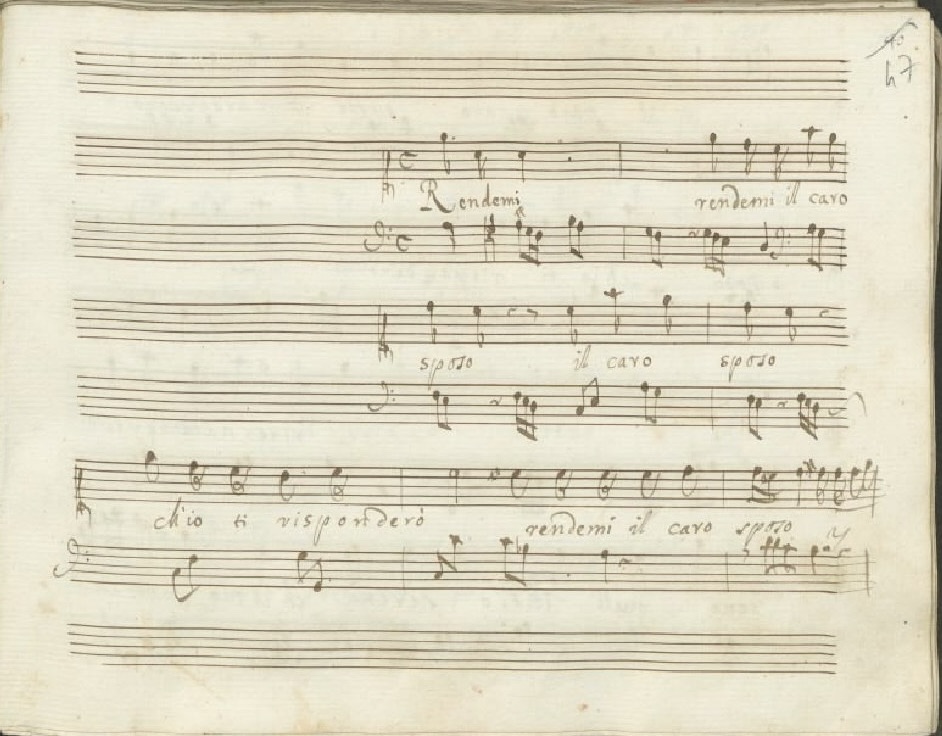 47
Rendemi rendemi il caro
sposo il caro sposo
ch'io ti risponderò rendemi il caro sposo